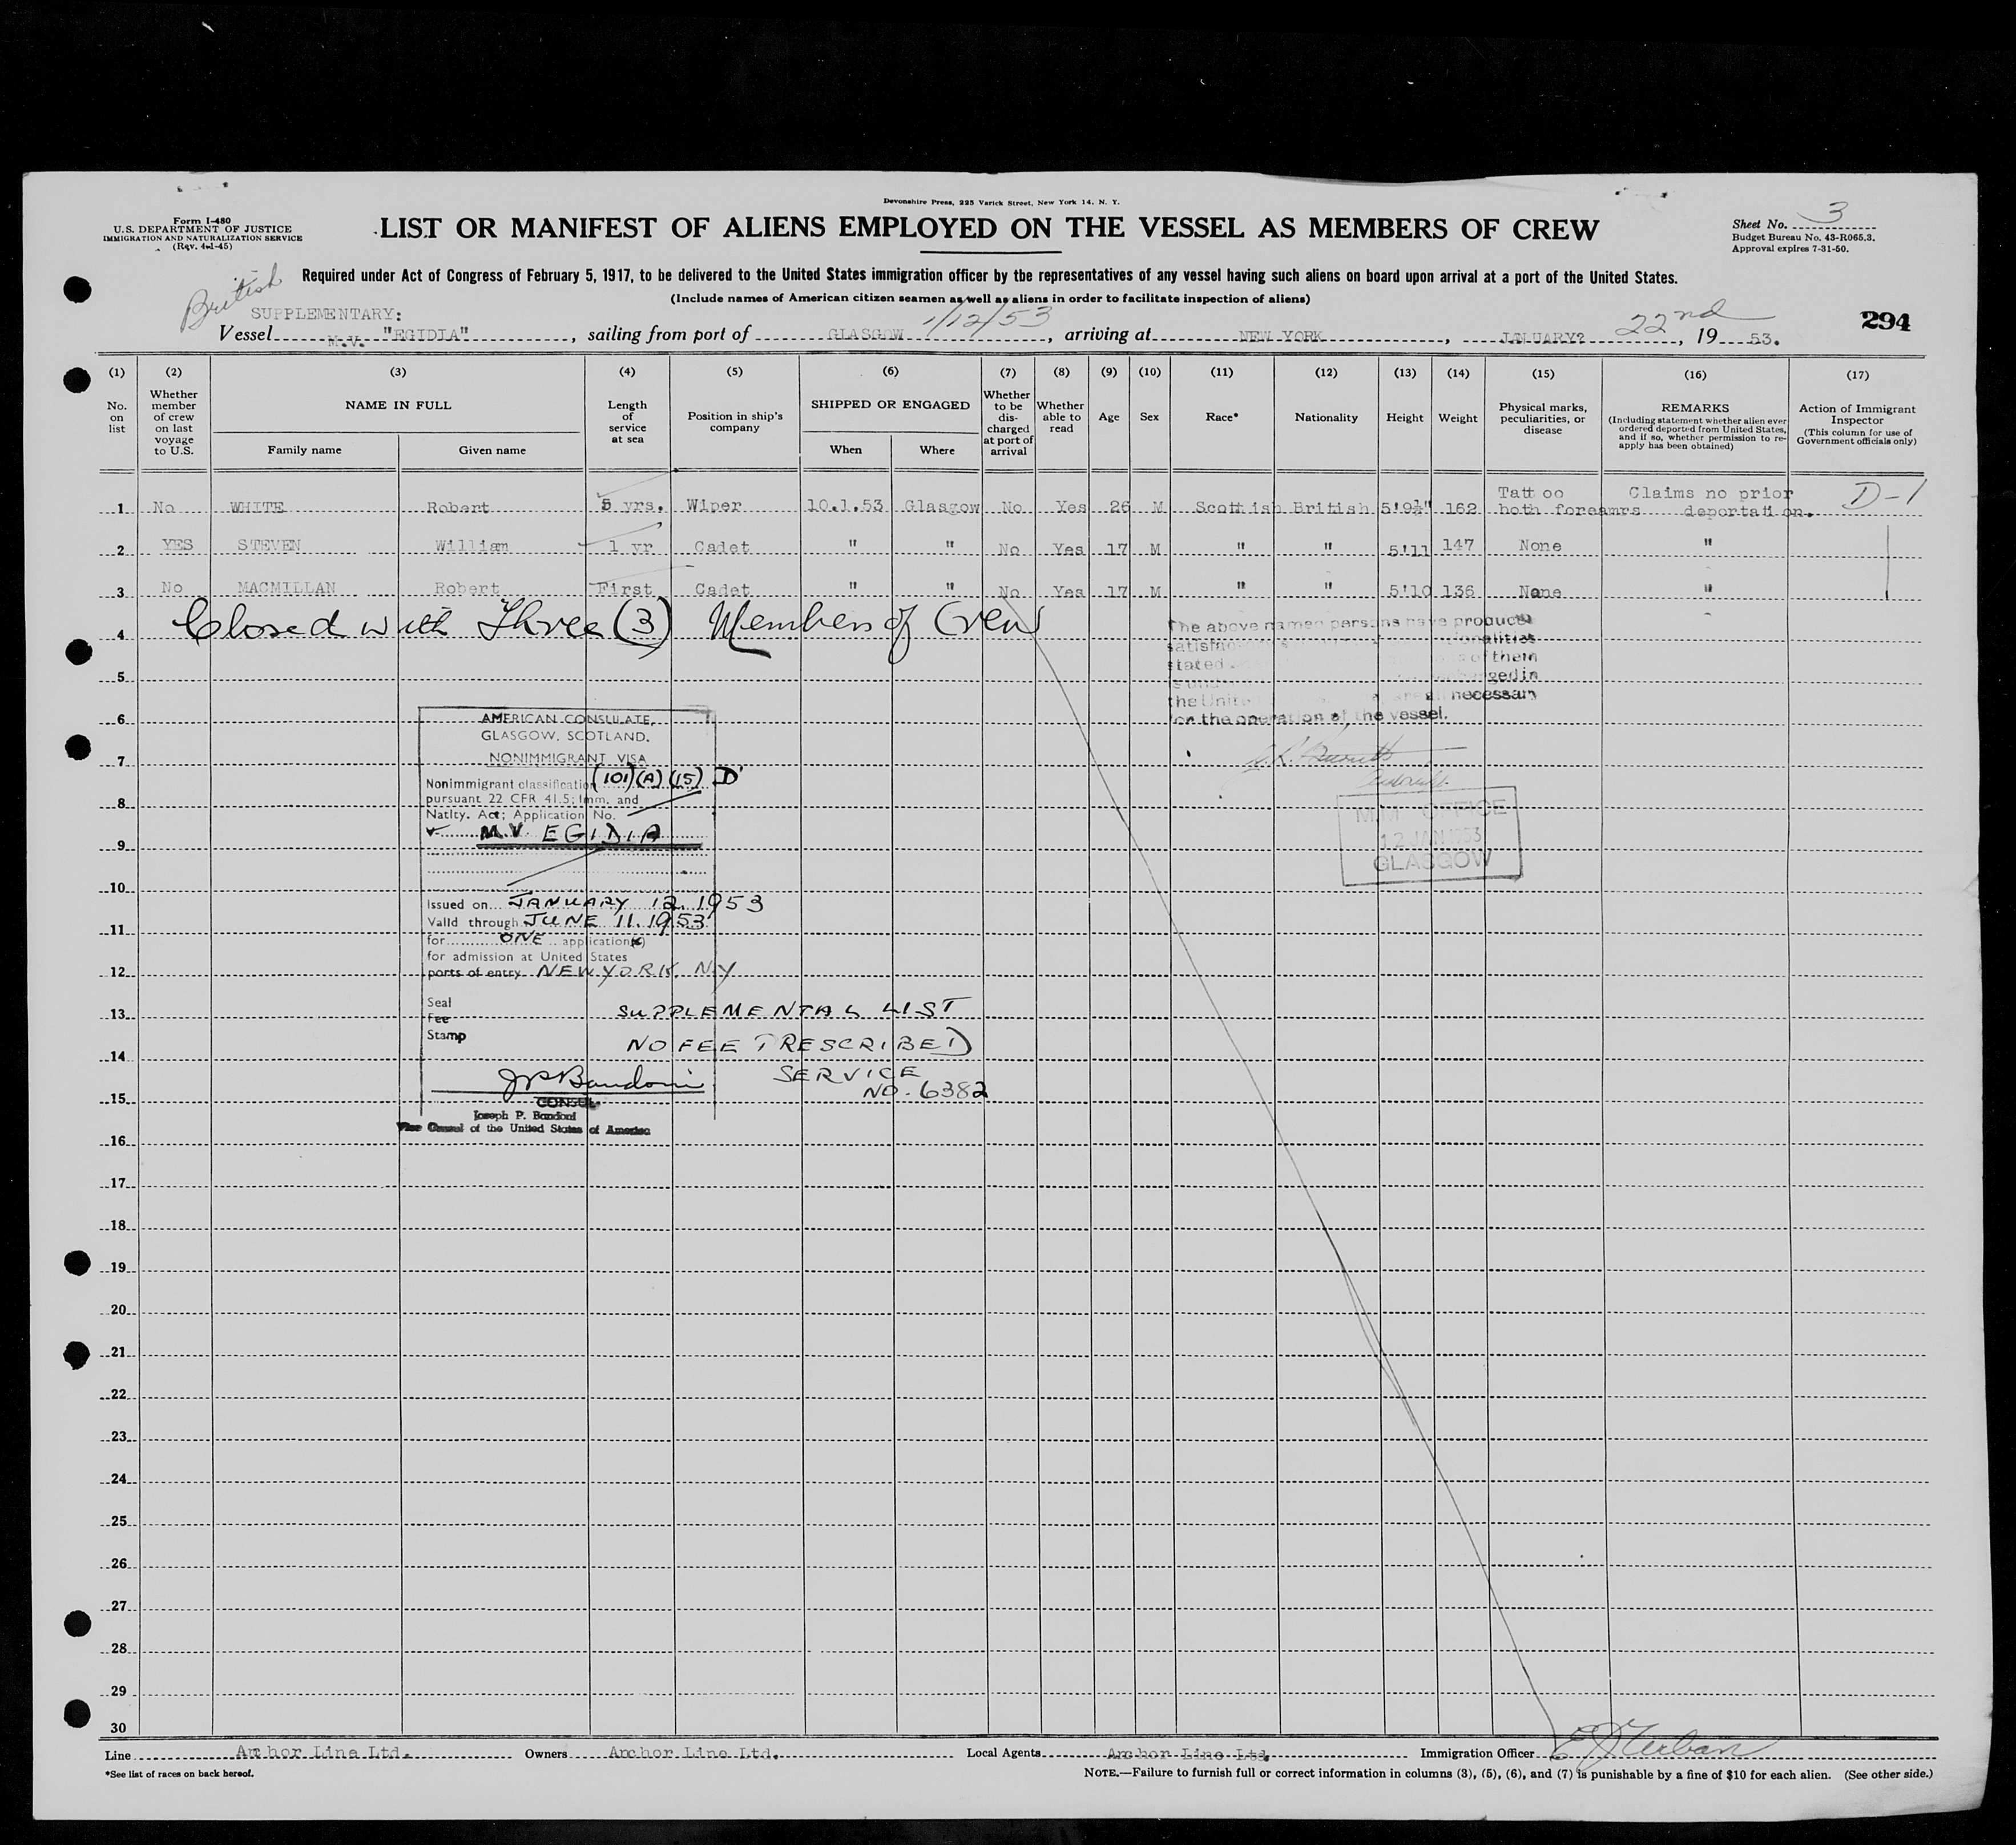 Devonshire Press, 225 Varick Street, New York 14, N. Y.
Form I-480
U.S. DEPARTMENT OF JUSTICE
IMMIGRATION AND NATURALIZATION SERVICE
(Rev. 4-1-45)
LIST OR MANIFEST OF ALIENS EMPLOYED ON THE VESSEL AS MEMBERS OF CREW
Sheet No. 3
Budget Bureau No. 43-R065.3.
Approval expires 7-31-50.
Required under Act of Congress of February 5, 1917, to be delivered to the United States immigration officer by the representatives of any vessel having such aliens on board upon arrival at a port of the United States.
(Include names of American citizen seamen as well as aliens in order to facilitate inspection of aliens)
British
SUPPLEMENTARY:
294
Vessel M.V. "EGIDIA", sailing from port of GLASGOW 1/12/53, arriving at NEW YORK, JENUARY? 22nd, 19 53.
(1) (2) (3) (4) (5) (6) (7) (8) (9) (10) (11) (12) (13) (14) (15) (16) (17)
No. on list
Whether member of crew on last voyage to U.S.
NAME IN FULL
Family name
Given name
Length of service at sea
Position in ship's company
SHIPPED OR ENGAGED
When
Where
Whether to be discharged at port of arrival
Whether able to read
Age
Sex
Race*
Nationality
Height
Weight
Physical marks, peculiarities, or disease
REMARKS
(Including statement whether alien ever ordered deported from United States, and if so, whether permission to re-apply has been obtained)
Action of Immigrant Inspector
(This column for use of Government officials only)
1 No WHITE Robert 5 yrs. Wiper 10.1.53 Glasgow No Yes 26 M Scottish British 5'9½" 162 Tattoo both foreamrs Claims no prior deportation. D-1
2 YES STEVEN William 1 yr Cadet " " No Yes 17 M " " 5'11 147 None "
3 No MACMILLAN Robert First Cadet " " No Yes 17 M " " 5'10 136 None "
4 Closed with Three (3) Members of Crew
The above named persons have produced
stated of them
the United necessary
for the operation of the vessel.
5
6
7
8
9
10
11
12
13
14
15
16
17
18
19
20
21
22
23
24
25
26
27
28
29
30
AMERICAN CONSULATE,
GLASGOW, SCOTLAND.
NONIMMIGRANT VISA
Nonimmigrant classification (101)(A)(15) D'
pursuant 22 CFR 41.5; Imm. and
Natlty. Act; Application No.
M.V. EGIDIA
Issued on JANUARY 12. 1953
Valid through JUNE 11. 1953
for ONE application(s)
for admission at United States
ports of entry NEW YORK NY
Seal
Fee
Stamp
SUPPLEMENTAL LIST
NO FEE PRESCRIBED
SERVICE
NO. 6382
JP Bandoni
CONSUL
Joseph P. Bandoni
Vice Consul of the United States of America
M.M. OFFICE
12 JAN 1953
GLASGOW
Line Anchor Line Ltd. Owners Anchor Line Ltd. Local Agents Anchor Line Ltd. Immigration Officer
*See list of races on back hereof.
NOTE.—Failure to furnish full or correct information in columns (3), (5), (6), and (7) is punishable by a fine of $10 for each alien. (See other side.)